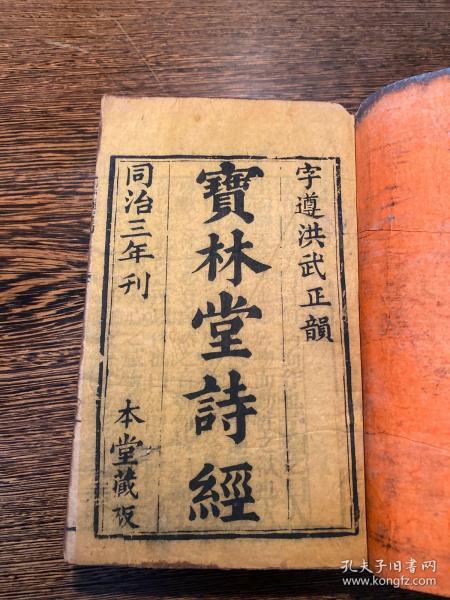 字遵洪武正韻
寶林堂詩經
同治三年刊
本堂藏板
孔夫子旧书网
www.kongfz.com